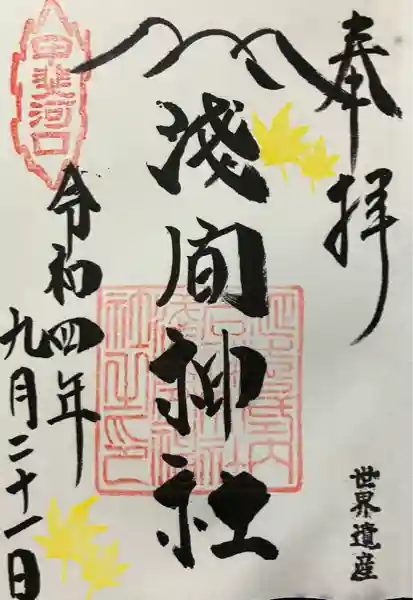 奉拝
世界遺産
浅間神社
甲斐河口
令和四年
九月二十一日